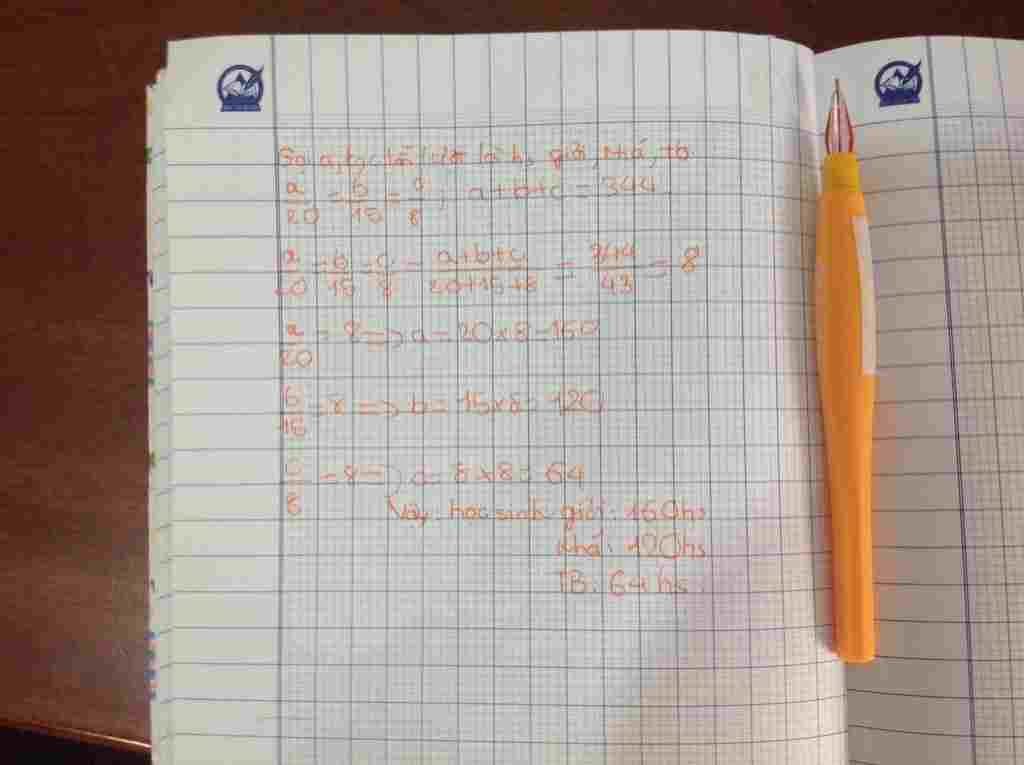 Gọi a, b, c lần lượt là hs giỏi, khá, tb
a/20 = b/15 = c/8; a+b+c = 344
a/20 = b/15 = c/8 = a+b+c/20+15+8 = 344/43 = 8
a/20 = 8 => a = 20 x 8 = 160
b/15 = 8 => b = 15 x 8 = 120
c/8 = 8 => c = 8 x 8 = 64
Vậy học sinh giỏi: 160hs
Khá: 120hs
TB: 64 hs.